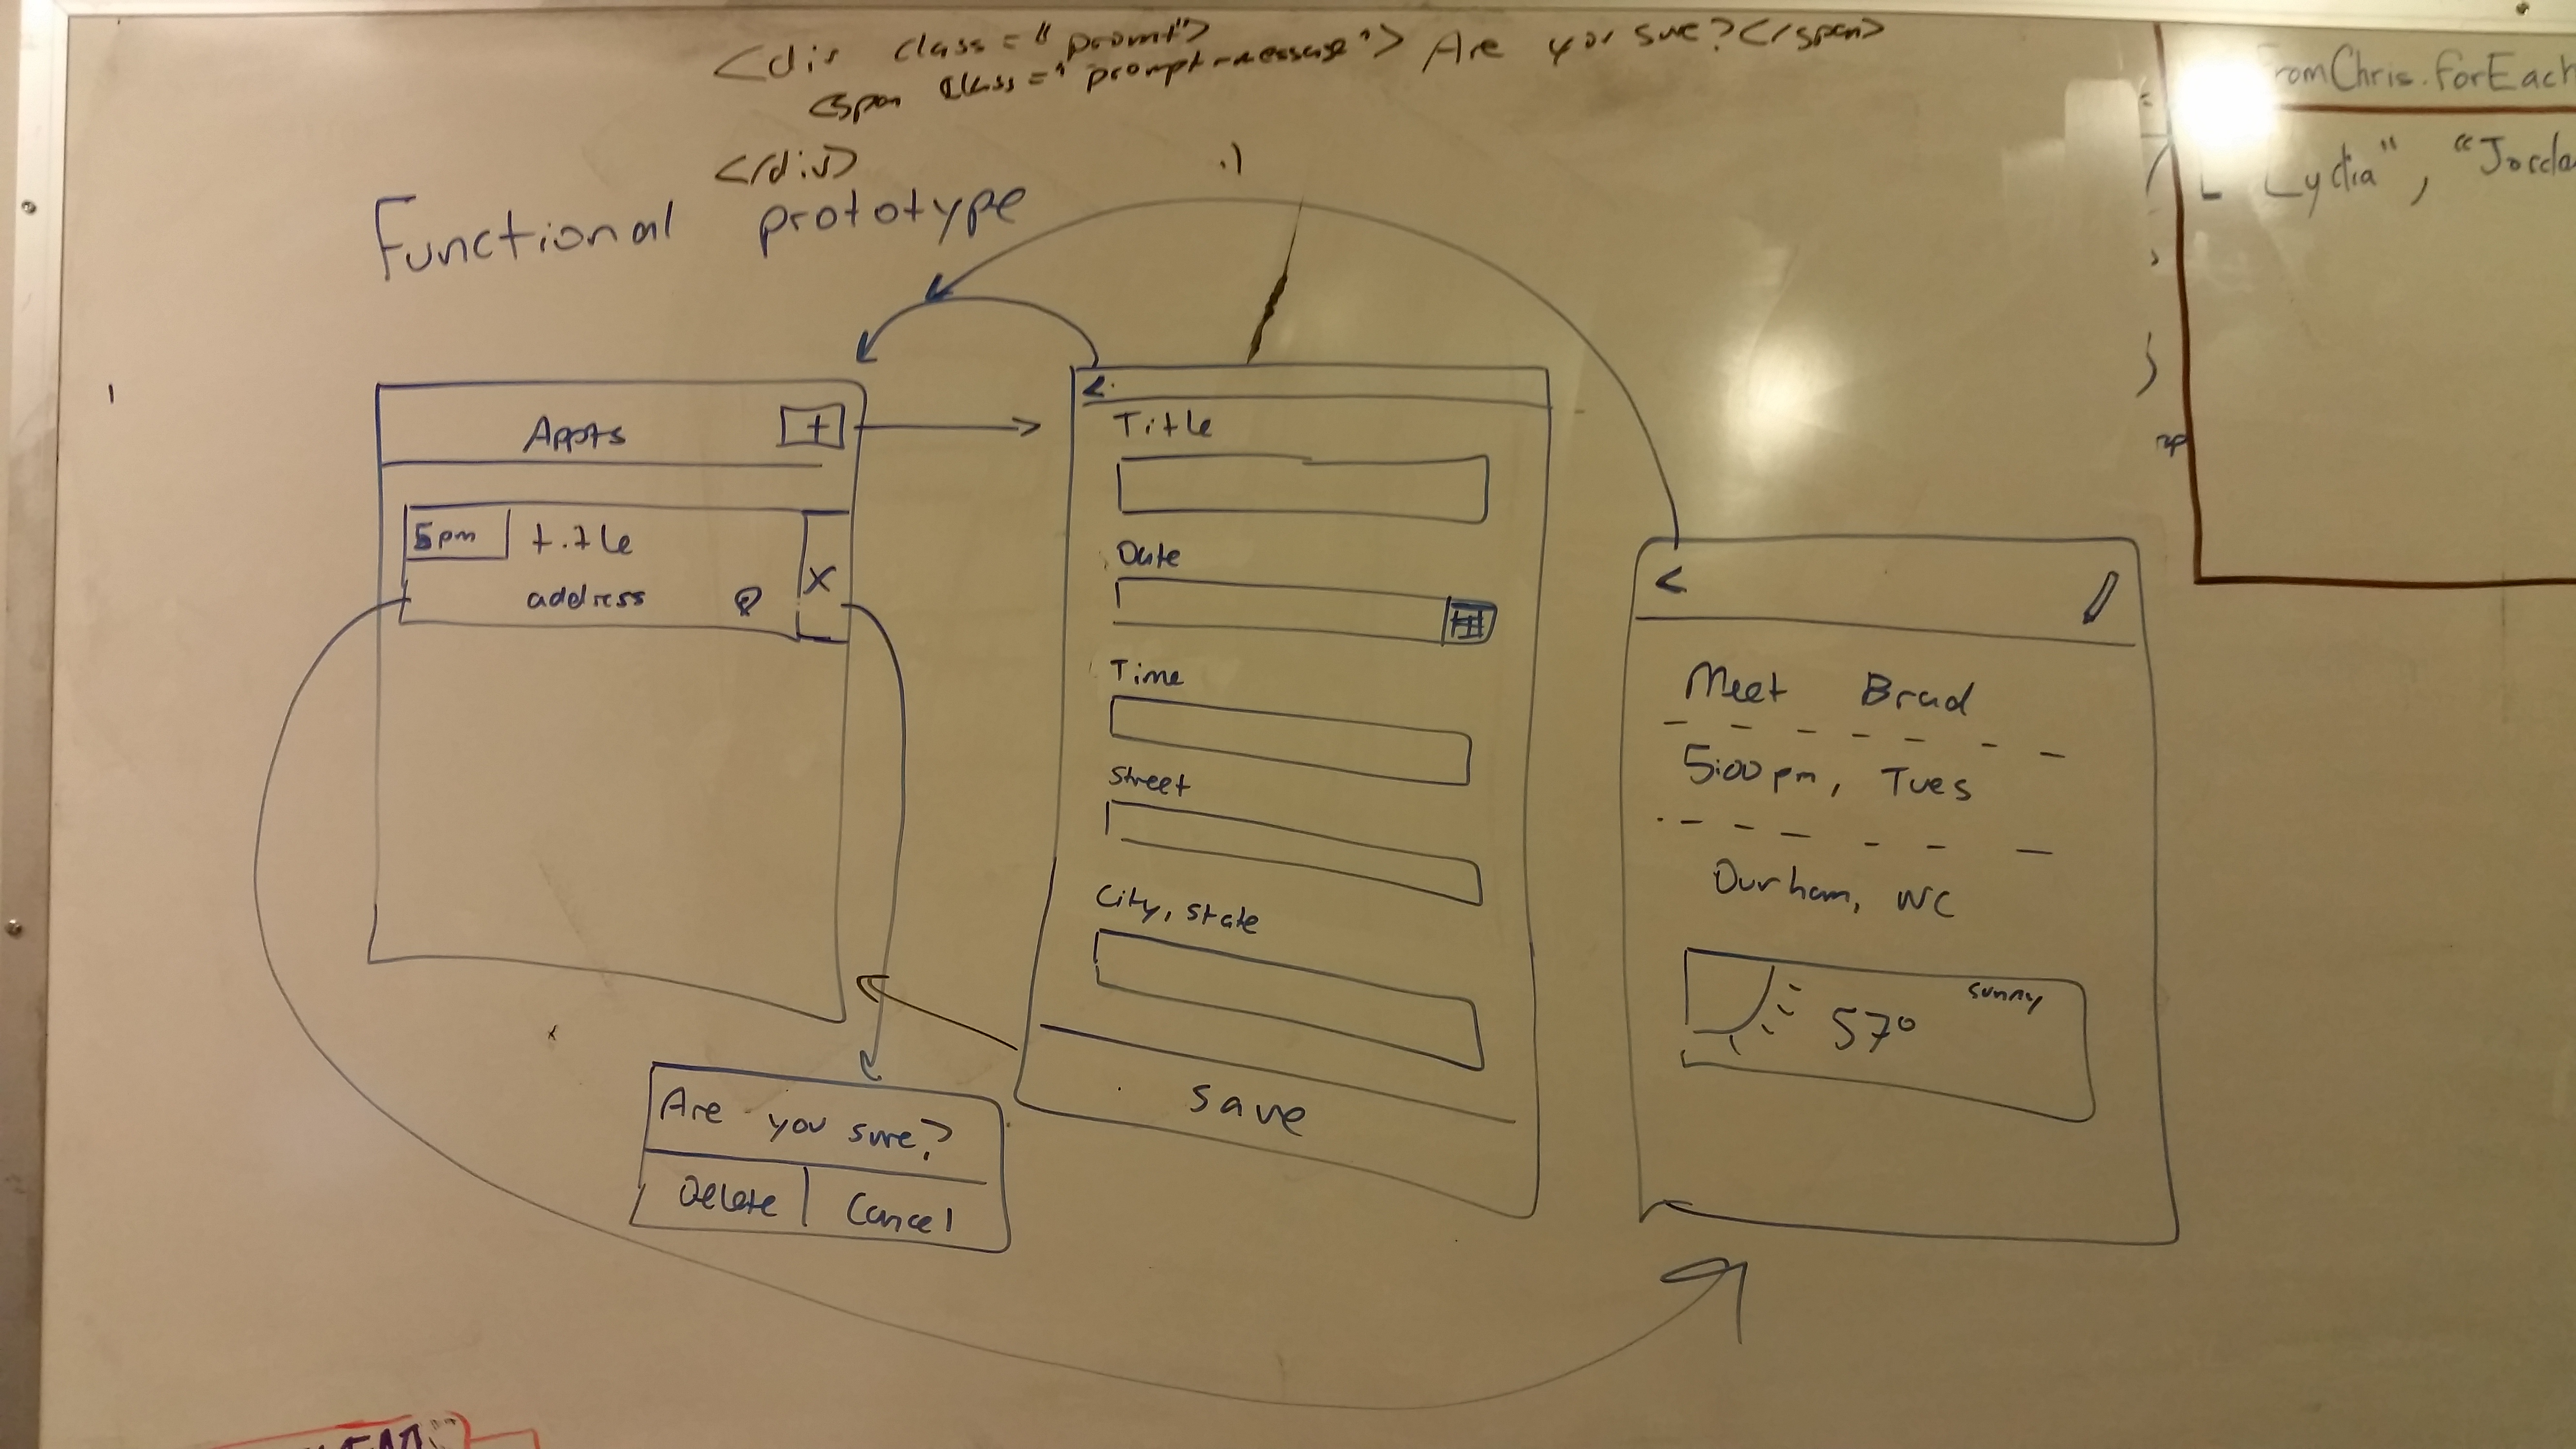 <div class="promt">
<span class="prompt-message"> Are you sure?</span>
</div>
Functional prototype
Appts +
5pm title
address
X
Are you sure?
Delete Cancel
<
Title
Date
Time
Street
City, state
Save
<
Meet Brad
5:00pm, Tues
Durham, NC
57° sunny
romChris.forEach
[ "Lydia", "Jorda